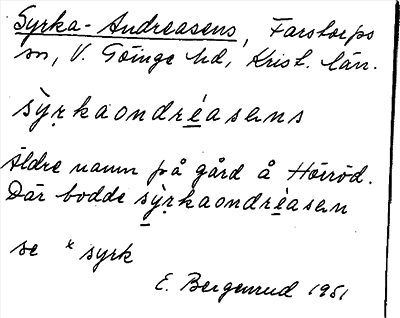 Syrka-Andreasens, Farstorps
sn, V. Göinge hd, Krist. län.
sỳrkaondréasens
Äldre namn på gård å Höiröd.
Där bodde sỳrkaondréasen
se * syrk
E. Bergenrud 1951